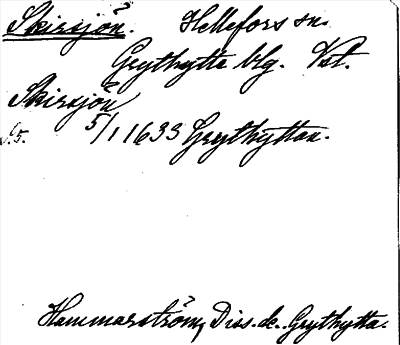 Skirsjön. Hellefors sn.
Grythytte blg. Vstl.
Skirsjön
s. 5. 5/1 1633 Grythyttan.
Hammarström, Diss. de Grythytta.